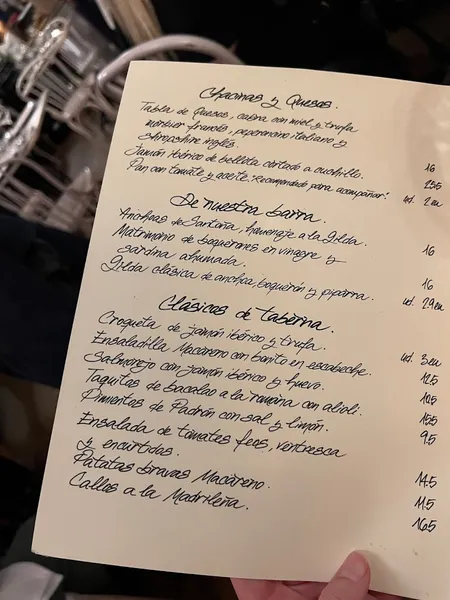 Chacinas y Quesos.
Tabla de Quesos, cabra con miel y trufa
morbier francés, peperoncino italiano y
shropshire inglés. 16
Jamón ibérico de bellota cortado a cuchillo. 23,5
Pan con tomate y aceite. "Recomendado para acompañar" ud. 2eu
De nuestra barra.
Anchoas de Santoña, homenaje a la Gilda. 16
Matrimonio de boquerones en vinagre y
sardina ahumada. 16
Gilda clásica de anchoa, boquerón y piparra. ud. 2.9eu
Clásicos de Taberna.
Croqueta de jamón ibérico y trufa. ud. 3eu
Ensaladilla Macareno con bonito en escabeche. 12,5
Salmorejo con jamón ibérico y huevo. 10,5
Taquitos de bacalao a la romana con alioli. 15,5
Pimientos de Padrón con sal y limón. 9,5
Ensalada de tomates feos, ventresca
y encurtidos. 14,5
Patatas bravas Macareno. 11,5
Callos a la Madrileña. 16,5